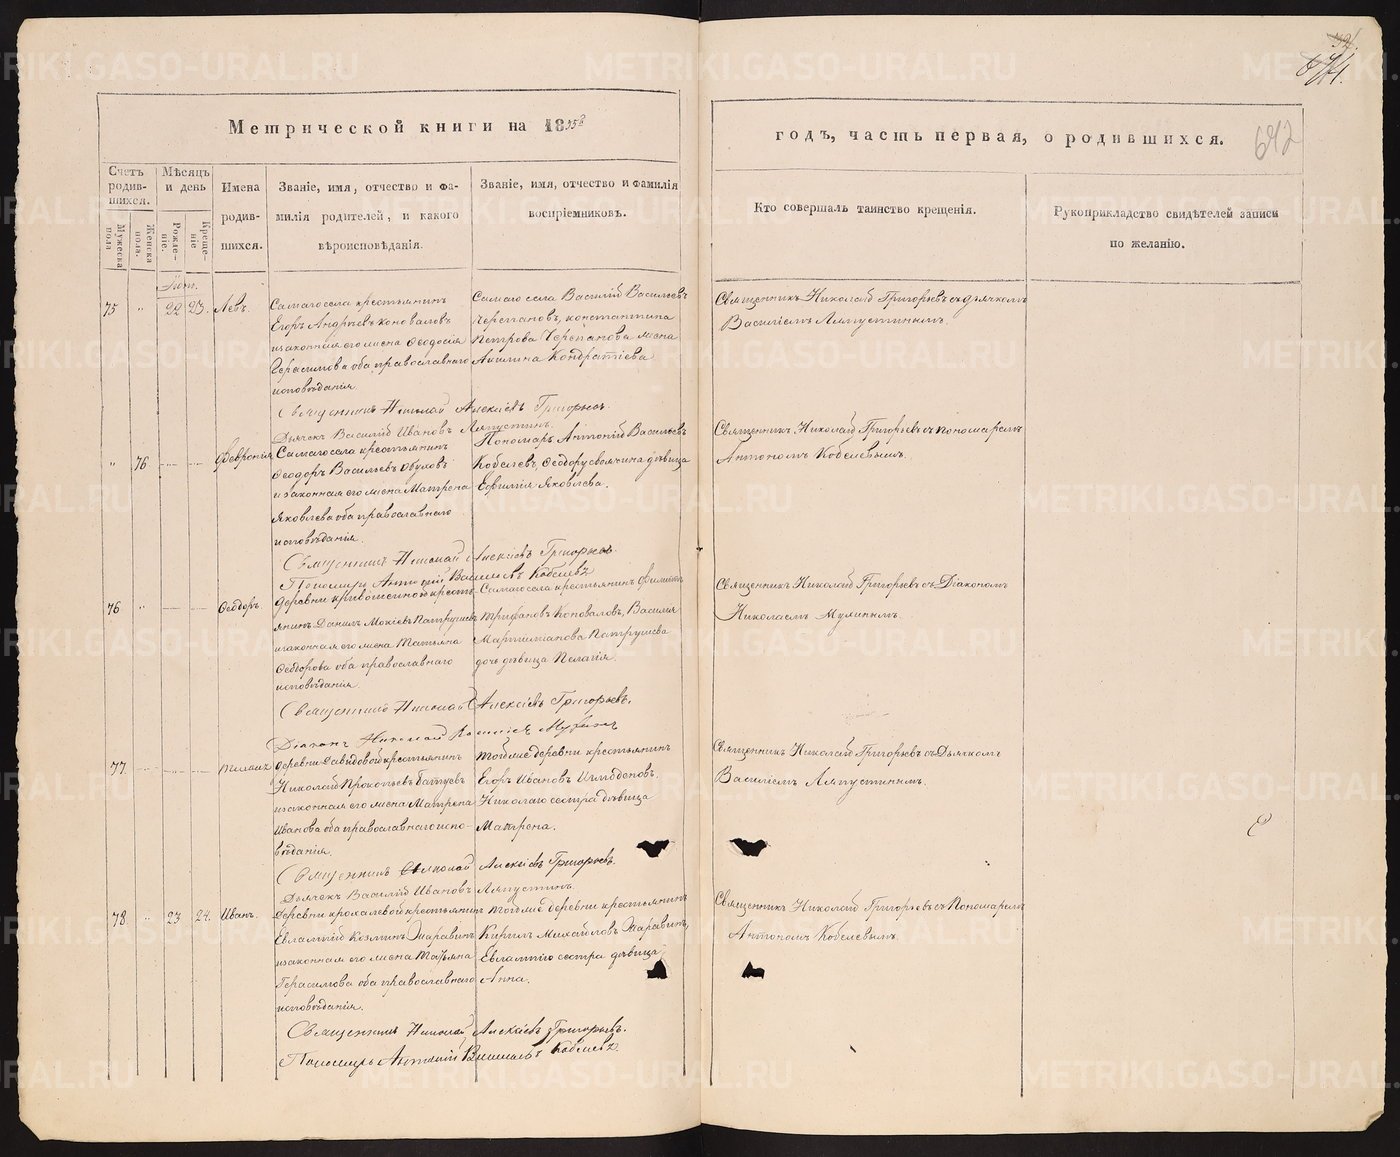 Метрической книги на 1858
годъ, часть первая, о родившихся.
642
Счетъ родившихся.
Мужеска пола
Женска пола.
Мѣсяцъ и день
Рожденіе.
Крещеніе
Имена родившихся.
Званіе, имя, отчество и фамилія родителей, и какого вѣроисповѣданія.
Званіе, имя, отчество и фамилія воспріемниковъ.
Кто совершалъ таинство крещенія.
Рукоприкладство свидѣтелей записи по желанію.
75 " 22 23. Левъ.
Самаго села крестьянинъ
Егоръ Андреевъ Коноваловъ
и законная его жена Феодосія
Герасимова оба православнаго
исповѣданія
Самаго села Василій Васильевъ
Черепановъ, Константина
Петрова Черепанова жена
Акилина Кондратіева
Священникъ Николай Григорьевъ съ дьячкомъ
Василіемъ Ляпустинымъ.
Священникъ Николай Алексіевъ Григорьевъ
Дьячекъ Василій Ивановъ Ляпустинъ.
" 76 Февронія
Самаго села крестьянинъ
Феодоръ Васильевъ Обуховъ
и законная его жена Матрена
Яковлева оба православнаго
исповѣданія.
Пономарь Антоній Васильевъ
Кобелевъ, дѣвица
Евфимія Яковлева.
Священникъ Николай Григорьевъ съ Пономаремъ
Антономъ Кобелевымъ.
Священникъ Николай Алексіевъ Григорьевъ
Пономарь Антоній Васильевъ Кобелевъ
76 " Феодоръ.
Данилъ Мокіевъ Патрушевъ
и законная его жена Татьяна
Феодорова оба православнаго
исповѣданія.
Самаго села крестьянинъ
Трифановъ Коноваловъ, Василія
Патрушева
дочь дѣвица Пелагія.
Священникъ Николай Григорьевъ съ Діакономъ
Николаемъ Мулинымъ.
Священникъ Николай Алексіевъ Григорьевъ.
Діаконъ Николай
77
Деревни Давыдовой крестьянинъ
Николай Прокопьевъ
и законная его жена Матрена
Иванова оба православнаго испо-
вѣданія.
Тойже деревни крестьянинъ
Егоръ Ивановъ
Николаю сестра дѣвица
Матрена.
Священникъ Николай Григорьевъ съ Дьячкомъ
Василіемъ Ляпустинымъ.
Священникъ Николай Алексіевъ Григорьевъ.
Дьячекъ Василій Ивановъ Ляпустинъ.
78 " 23 24. Иванъ.
Деревни Крохалевой крестьянинъ
Евлампій Козминъ Шаравинъ
и законная его жена Татьяна
Герасимова оба православнаго
исповѣданія.
Тойже деревни крестьянинъ
Кирилъ Михайловъ Шаравинъ,
Евлампію сестра дѣвица
Анна.
Священникъ Николай Григорьевъ съ Пономаремъ
Антономъ Кобелевымъ.
Священникъ Николай Алексіевъ Григорьевъ.
Пономарь Антоній Васильевъ Кобелевъ.
METRIKI.GASO-URAL.RU